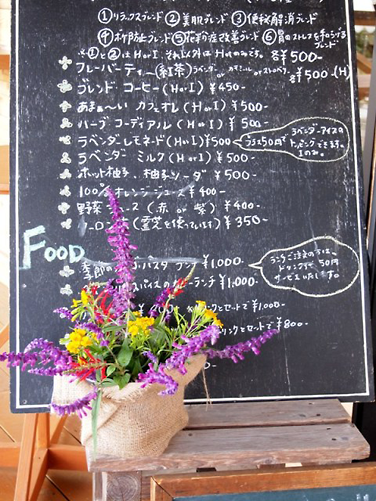 ①リラックスブレンド ②美肌ブレンド ③便秘解消ブレンド
④不眠防止ブレンド ⑤花粉症改善ブレンド ⑥胃のストレスを和らげるブレンド
※①と②はH or I、それ以外はHのみです。各¥500-
フレーバーティー(紅茶) ラベンダー or カモミール or 各¥500-(H)
ブレンドコーヒー(H or I) ¥450-
あまぁ〜いカフェオレ(H or I) ¥500-
ハーブコーディアル(H or I) ¥500-
ラベンダーレモネード(H or I) ¥500-
プラス50円で
ラベンダーアイスを
トッピングできます。
Iのみ。
ラベンダーミルク(H or I) ¥500-
ホット柚子、柚子ソーダ ¥500-
100%オレンジジュース ¥400-
野菜 ス(赤 or 紫) ¥400-
ーロン (霊芝を使っています) ¥350-
FOOD
季節の パスタランチ ¥1,000-
ランチご注文の方は、
ドリンクが50円
サービスいたします。
スパイスの ーランチ ¥1,000-
リンクとセットで¥1,000-
リンクとセットで¥800-